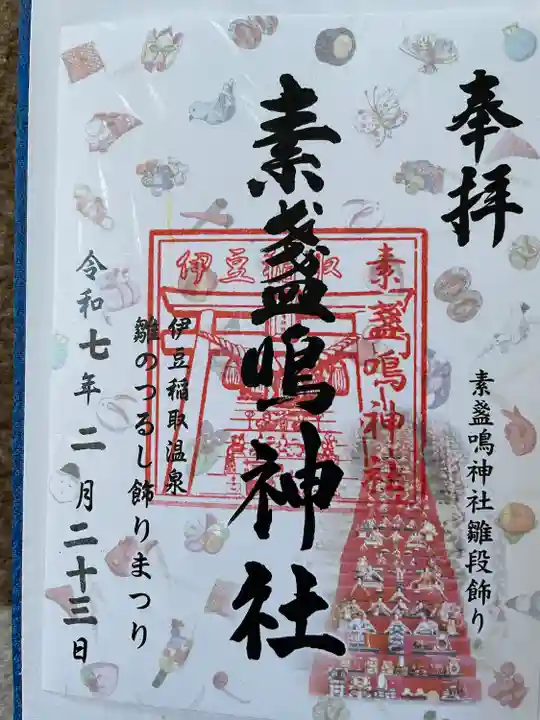 奉拝
素盞嗚神社雛段飾り
素盞嗚神社
素盞嗚神社
伊豆稲取
伊豆稲取温泉
雛のつるし飾りまつり
令和七年二月二十三日